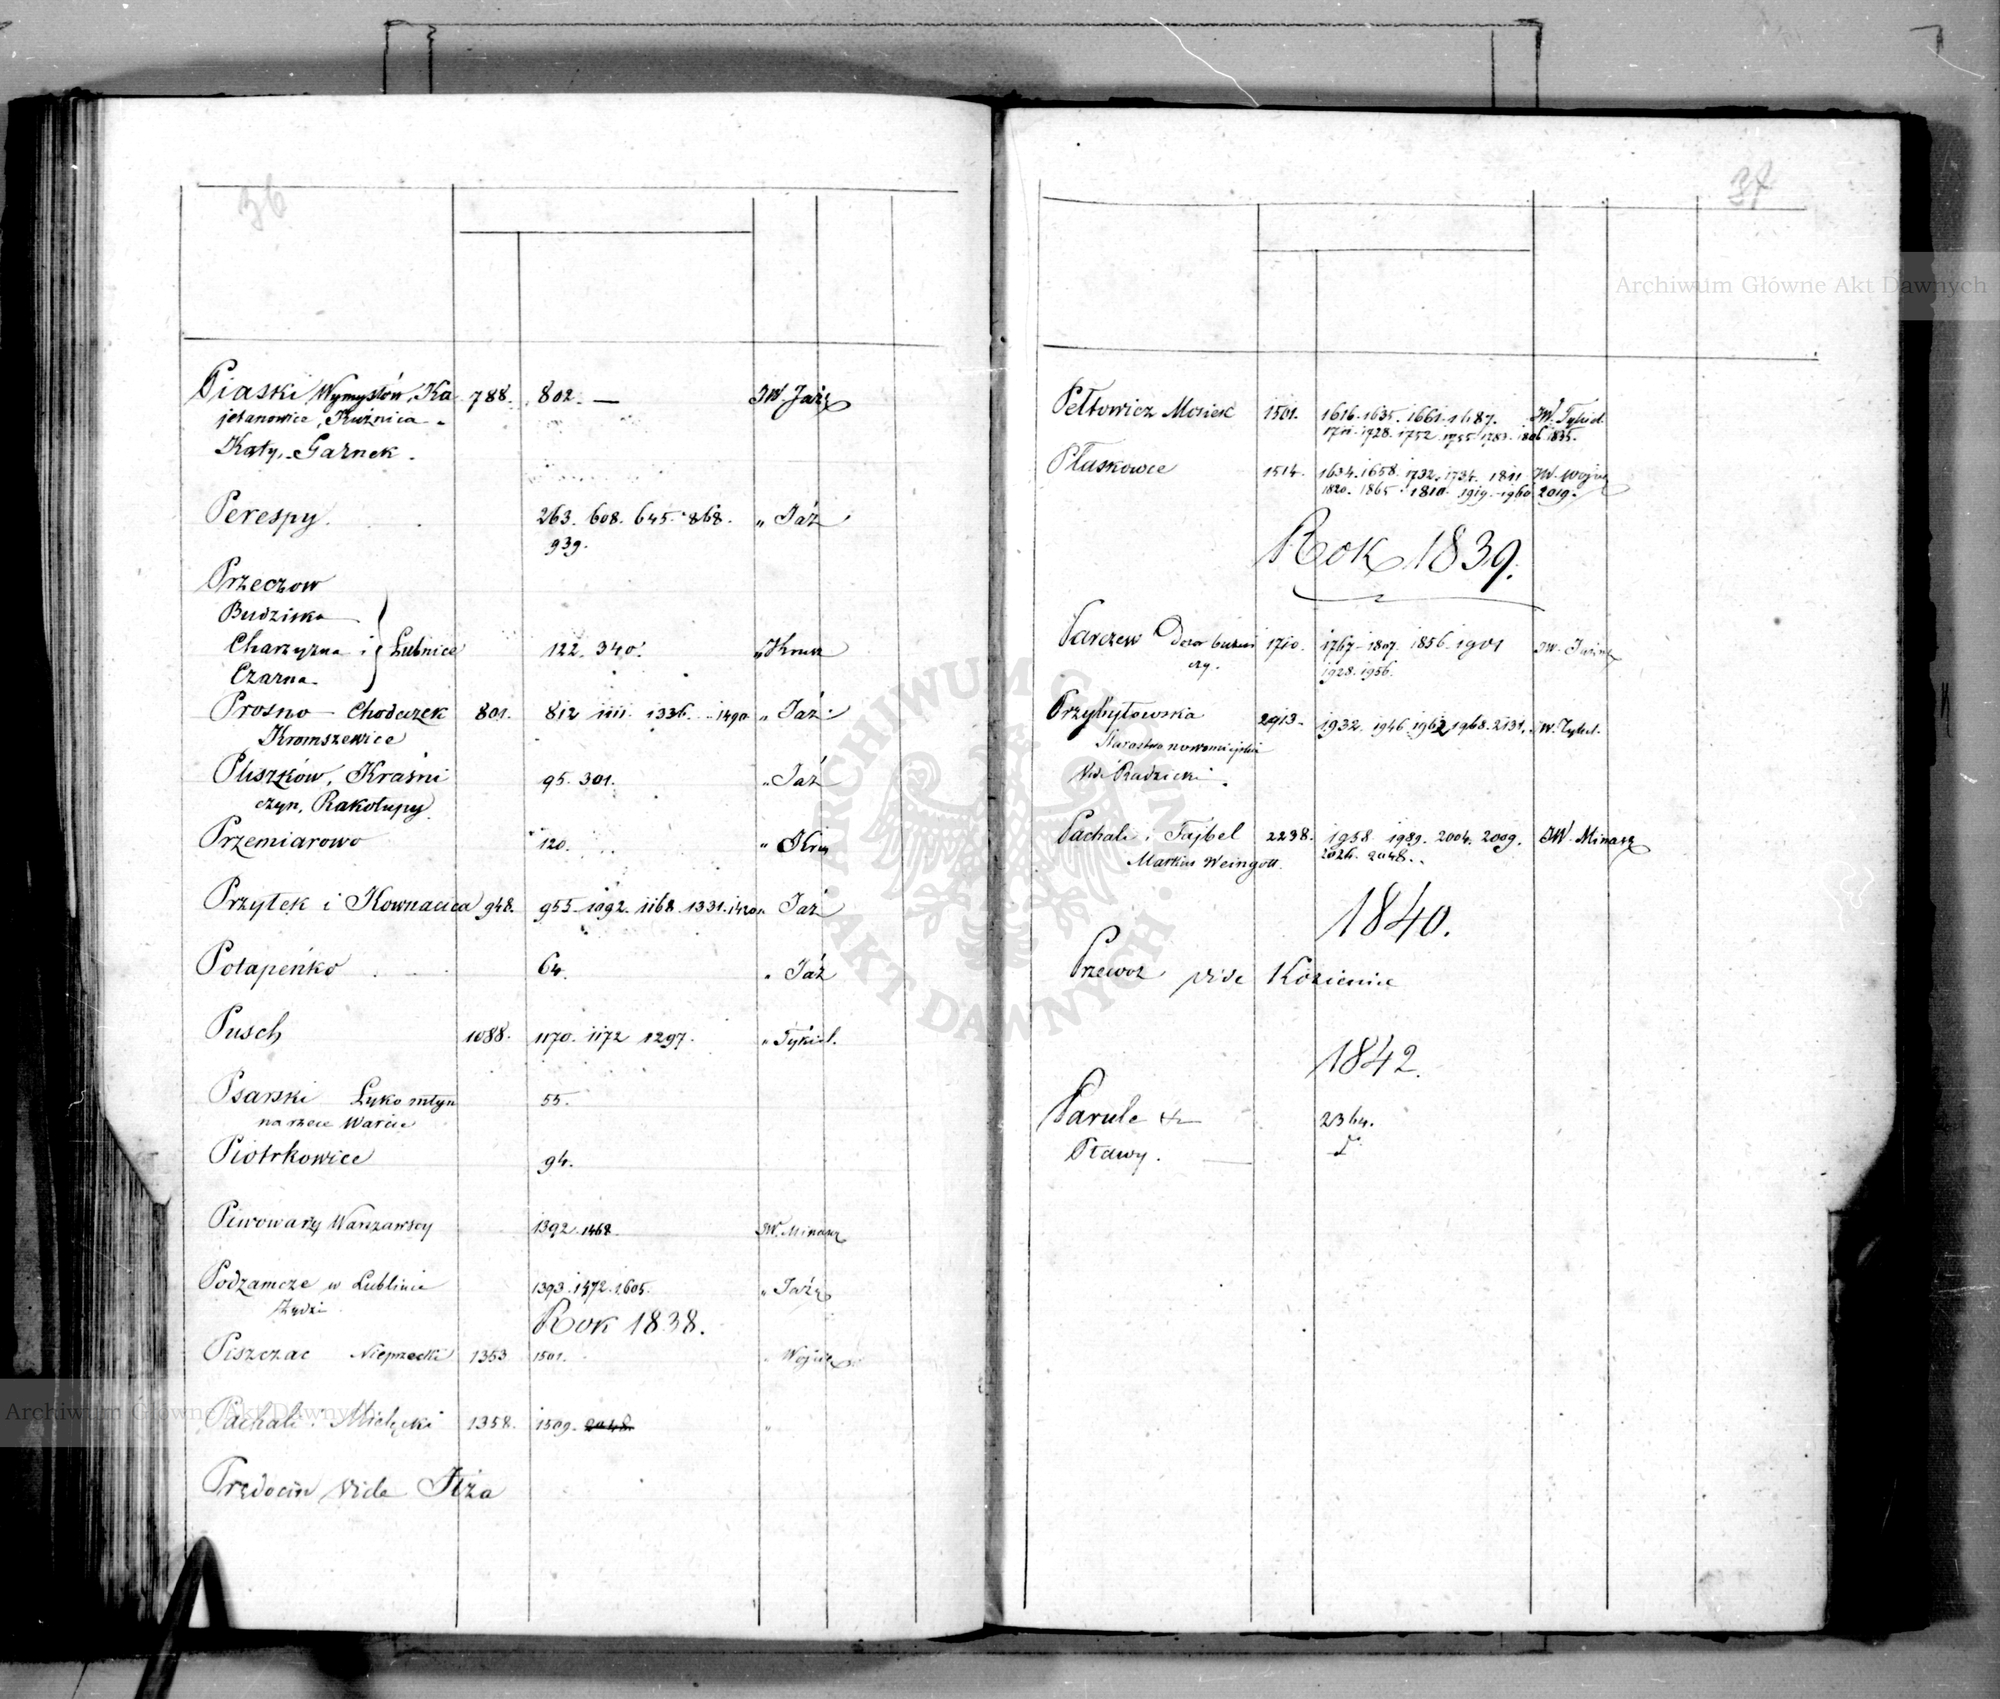 36
Piaski Wymysłów, Ka 788. 802. — JW. Jaźę
jetanowice, Kuźnica
Katy, Garnek.
Perespy. 263. 608. 645. 868. „ Jaź
939.
Przeczow
Budziska
Charzyzna i Łubnice 122. 340. „ Krusz
Czarna
Prosno – Chodaczek 801. 812 1111. 1336. 1490. „ Jaź
Kromszewice
Pliszków, Kraśni 95. 301. „ Jaź
czyn, Rakołupy
Przemiarowo 120. „
Przytek i Kownacica 948. 955. 1092. 1168. 1331. 1420. „ Jaź
Potapeńko 64. „ Jaź
Pusch 1088. 1170. 1172 1297. „ Tykiel.
Psarski Łyko młyn 55.
na rzece Warcie
Piotrkowice 94.
Piwowarzy Warszawscy 1392. 1468. JW. Minasz
Podzamcze w Lublinie 1393. 1472. 1605. „ Jaźę
Żydzi
Rok 1838.
Piszczac Nieprzecki 1353 1501. „
Pachali i Michęcki 1358. 1509. 2048. „
Prędocin vide Iłża
37
Pełtowicz Mosiek 1501. 1616. 1635. 1661. 1687. JW. Tykiel
1711. 1728. 1752. 1755. 1783. 1806 1835.
Płaskowce 1514. 1634. 1658. 1732. 1734. 1811 JW.
1820. 1865. 1810. 1919. 1960 2019.
Rok 1839.
Parczew Dozor bużni 1710. 1767. 1807. 1856. 1901 JW.
czy. 1928. 1956.
Przybytowska 2913. 1932. 1946. 1962 1968. 2131. JW. Tykel.
Starostwo nowomiejskie
Vide Radzicki.
Pachali i Fajbel 2238. 1958 1989. 2004. 2009. JW. Minasz
Markus Weingott. 2026. 2048.
1840.
Przewoz vide Kozienice
1842.
Parule 2364.
Pławy. —
Archiwum Główne Akt Dawnych
Archiwum Główne Akt Dawnych
ARCHIWUM GŁÓWNE AKT DAWNYCH